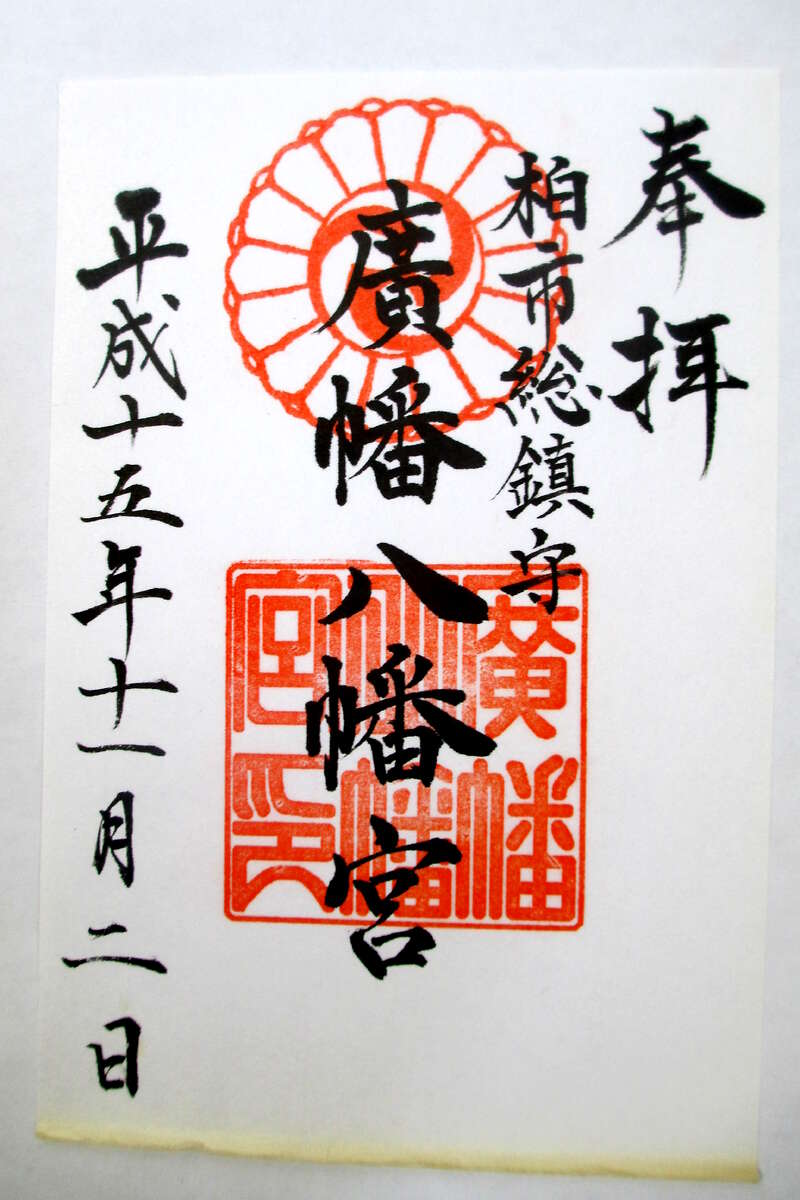 奉拝
柏市総鎮守
廣幡八幡宮
平成十五年十一月二日
廣幡
八幡
宮印